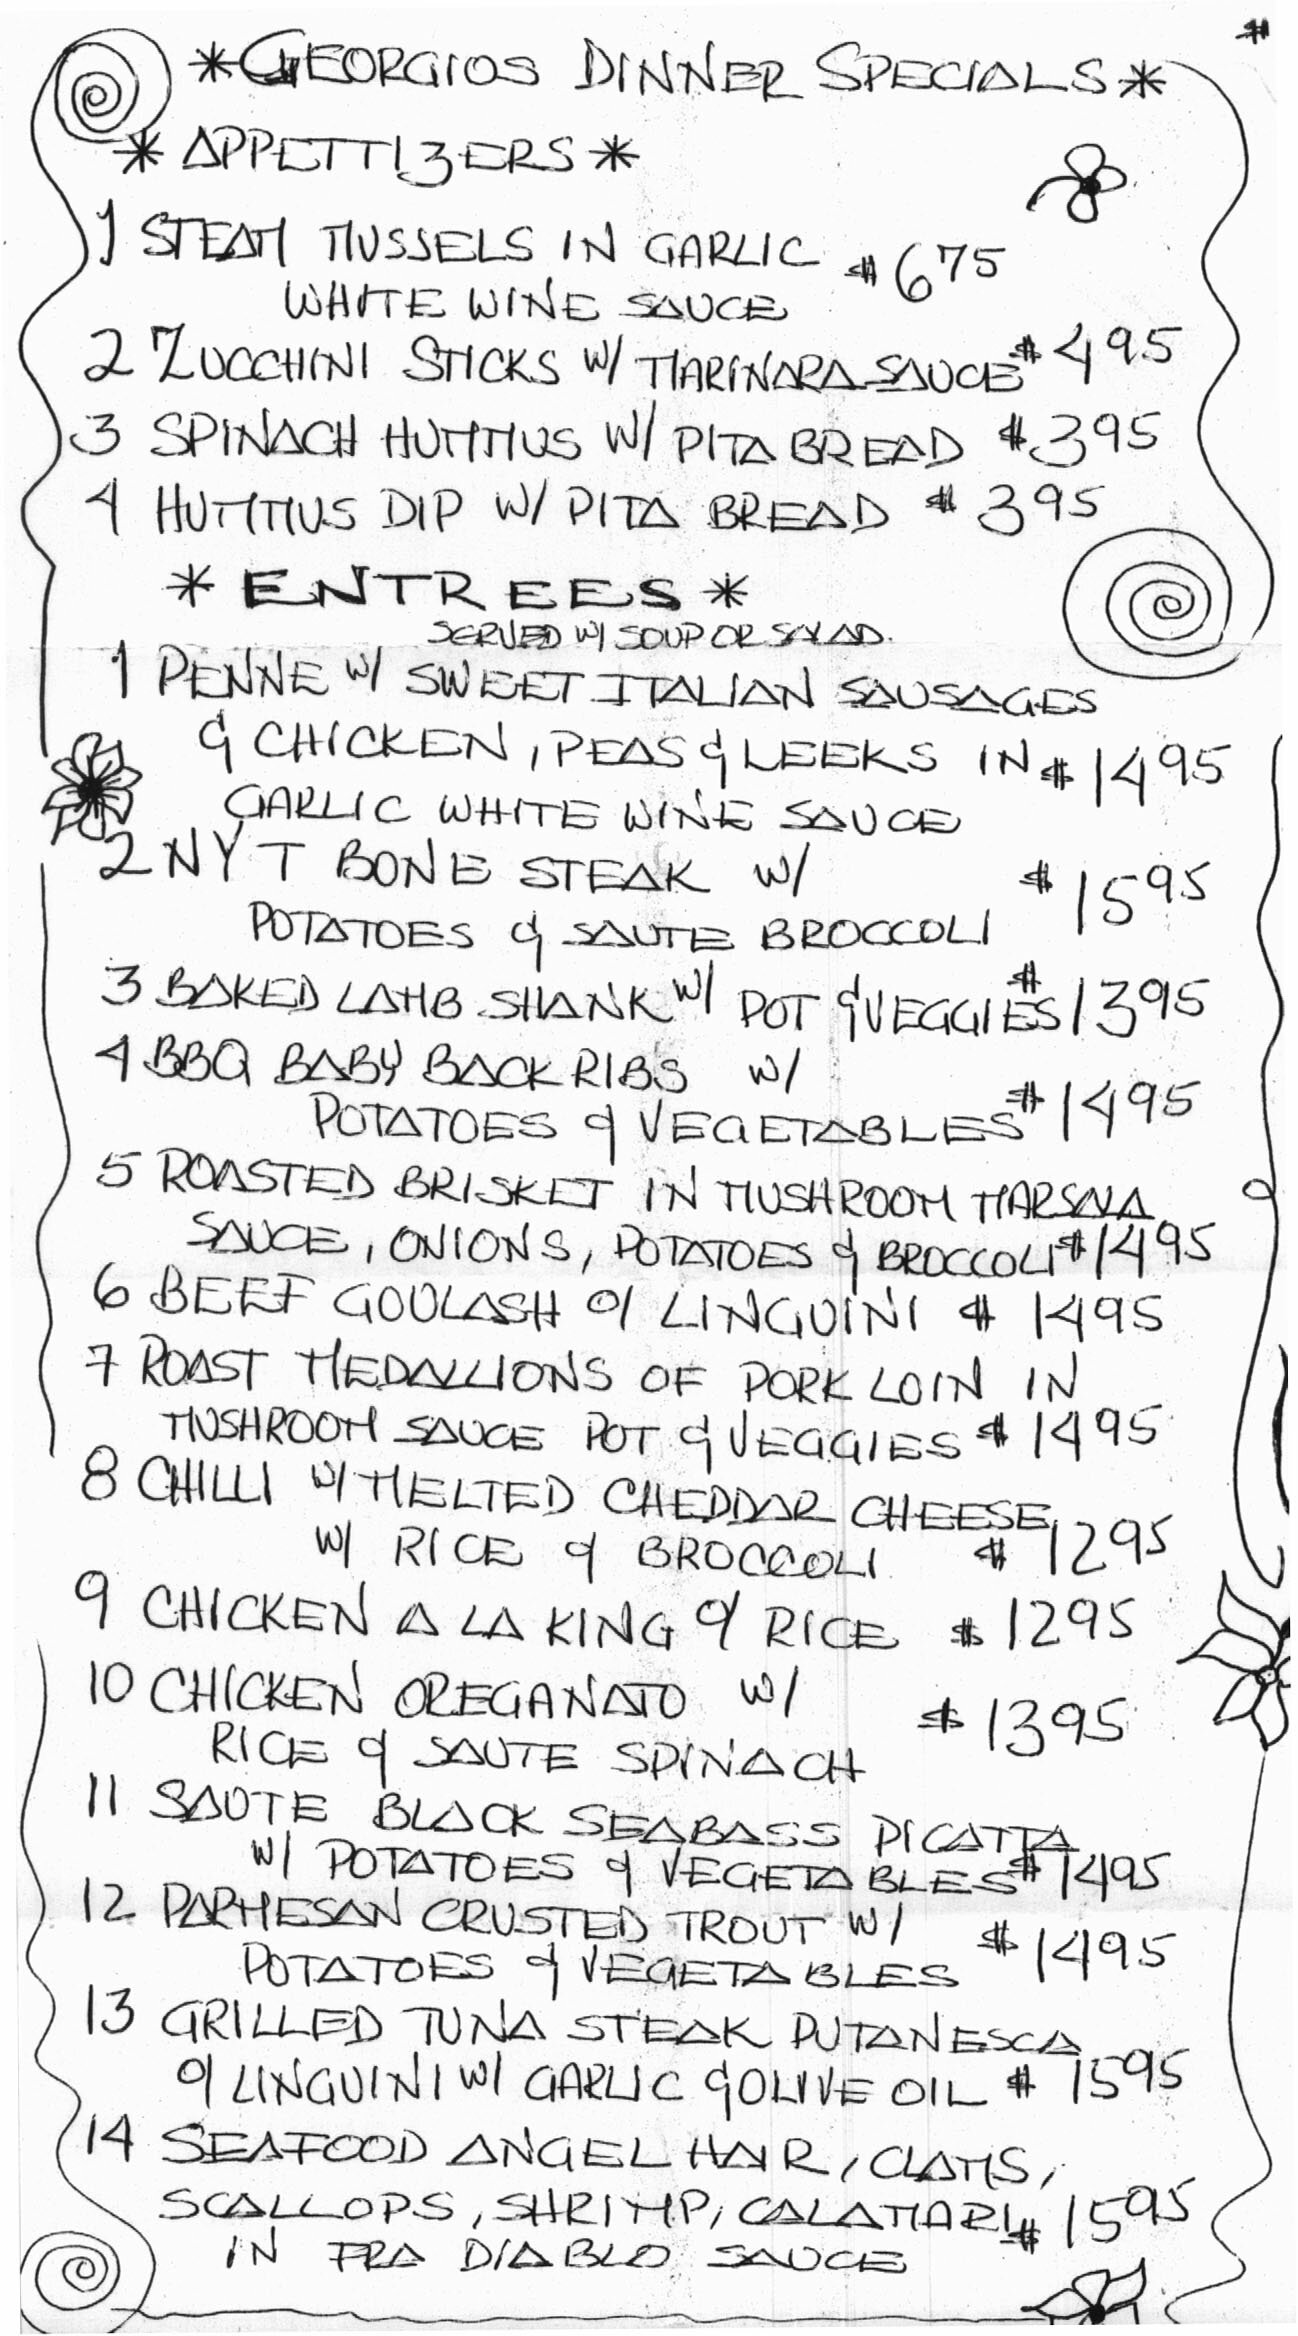 #
*GEORGIOS DINNER SPECIALS*
* APPETTIZERS *
1 STEAM MUSSELS IN GARLIC $6 75
WHITE WINE SAUCE
2 ZUCCHINI STICKS W/ MARINARA SAUCE $4 95
3 SPINACH HUMMUS W/ PITA BREAD $3 95
4 HUMMUS DIP W/ PITA BREAD $3 95
* ENTREES *
SERVED W/ SOUP OR SALAD.
1 PENNE W/ SWEET ITALIAN SAUSAGES
& CHICKEN, PEAS & LEEKS IN $14 95
GARLIC WHITE WINE SAUCE
2 NY T BONE STEAK W/ $15 95
POTATOES & SAUTE BROCCOLI
3 BAKED LAMB SHANK W/ POT & VEGGIES $13 95
4 BBQ BABY BACK RIBS W/
POTATOES & VEGETABLES $14 95
5 ROASTED BRISKET IN MUSHROOM MARSALA
SAUCE, ONIONS, POTATOES & BROCCOLI $14 95
6 BEEF GOULASH O/ LINGUINI $ 14 95
7 ROAST MEDALLIONS OF PORK LOIN IN
MUSHROOM SAUCE POT & VEGGIES $ 14 95
8 CHILLI W/ MELTED CHEDDAR CHEESE
W/ RICE & BROCCOLI $ 12 95
9 CHICKEN A LA KING O/ RICE $ 12 95
10 CHICKEN OREGANATO W/ $ 13 95
RICE & SAUTE SPINACH
11 SAUTE BLACK SEABASS PICATTA
W/ POTATOES & VEGETABLES $ 14 95
12 PARMESAN CRUSTED TROUT W/ $ 14 95
POTATOES & VEGETABLES
13 GRILLED TUNA STEAK PUTANESCA
O/ LINGUINI W/ GARLIC & OLIVE OIL $ 15 95
14 SEAFOOD ANGEL HAIR, CLAMS,
SCALLOPS, SHRIMP, CALAMARI $ 15 95
IN FRA DIABLO SAUCE